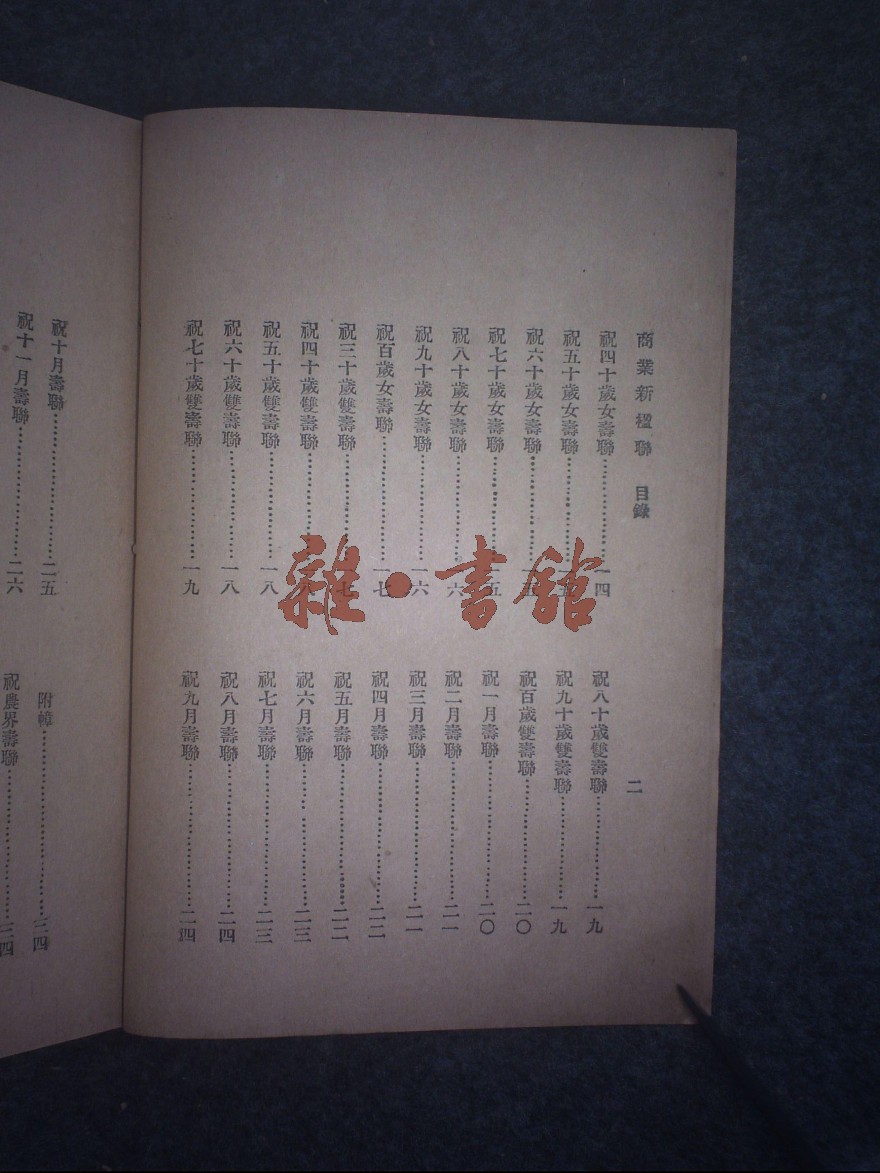 商業新楹聯 目錄 二
祝四十歲女壽聯……………一四
祝五十歲女壽聯……………一五
祝六十歲女壽聯……………一五
祝七十歲女壽聯……………一五
祝八十歲女壽聯……………一六
祝九十歲女壽聯……………一六
祝百歲女壽聯……………一七
祝三十歲雙壽聯……………一七
祝四十歲雙壽聯……………一八
祝五十歲雙壽聯……………一八
祝六十歲雙壽聯……………一八
祝七十歲雙壽聯……………一九
祝八十歲雙壽聯……………一九
祝九十歲雙壽聯……………一九
祝百歲雙壽聯……………二〇
祝一月壽聯……………二〇
祝二月壽聯……………二一
祝三月壽聯……………二一
祝四月壽聯……………二二
祝五月壽聯……………二二
祝六月壽聯……………二三
祝七月壽聯……………二三
祝八月壽聯……………二四
祝九月壽聯……………二四
祝十月壽聯……………二五
祝十一月壽聯……………二六
附幛……………三四
祝農界壽聯……………三四
雜·書館